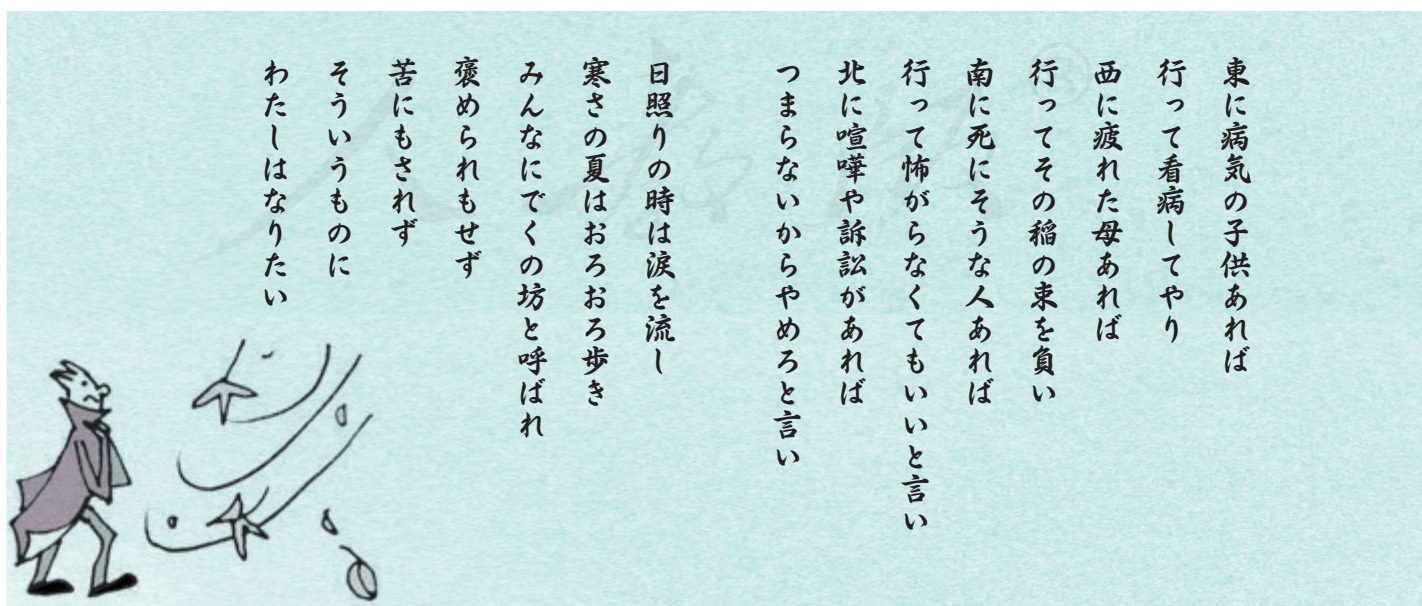 東に病気の子供あれば
行って看病してやり
西に疲れた母あれば
行ってその稲の束を負い
南に死にそうな人あれば
行って怖がらなくてもいいと言い
北に喧嘩や訴訟があれば
つまらないからやめろと言い
日照りの時は涙を流し
寒さの夏はおろおろ歩き
みんなにでくの坊と呼ばれ
褒められもせず
苦にもされず
そういうものに
わたしはなりたい